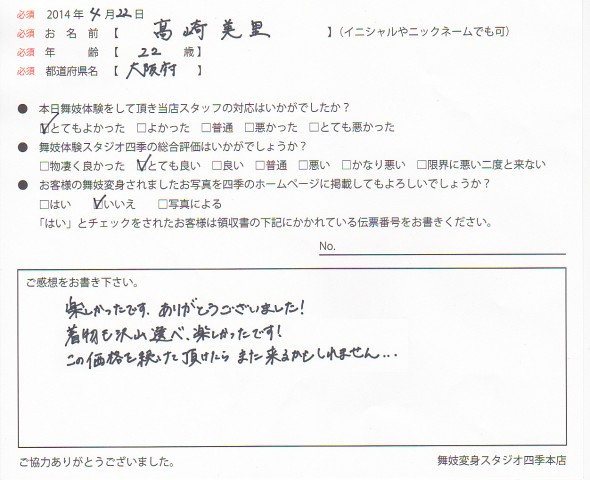 必須 2014年 4月22日
必須 お 名 前 【 高崎 美里 】(イニシャルやニックネームでも可)
必須 年 齢 【 22 歳】
必須 都道府県名 【 大阪府 】
● 本日舞妓体験をして頂き当店スタッフの対応はいかがでしたか?
☑とてもよかった □よかった □普通 □悪かった □とても悪かった
● 舞妓体験スタジオ四季の総合評価はいかがでしょうか?
□物凄く良かった ☑とても良い □良い □普通 □悪い □かなり悪い □限界に悪い二度と来ない
● お客様の舞妓変身されましたお写真を四季のホームページに掲載してもよろしいでしょうか?
□はい ☑いいえ □写真による
「はい」とチェックをされたお客様は領収書の下記にかかれている伝票番号をお書きください。
No.
ご感想をお書き下さい。
楽しかったです。ありがとうございました!
着物も沢山選べ、楽しかったです!
この価格を続けて頂けたら また来るかもしれません...
ご協力ありがとうございました。 舞妓変身スタジオ四季本店